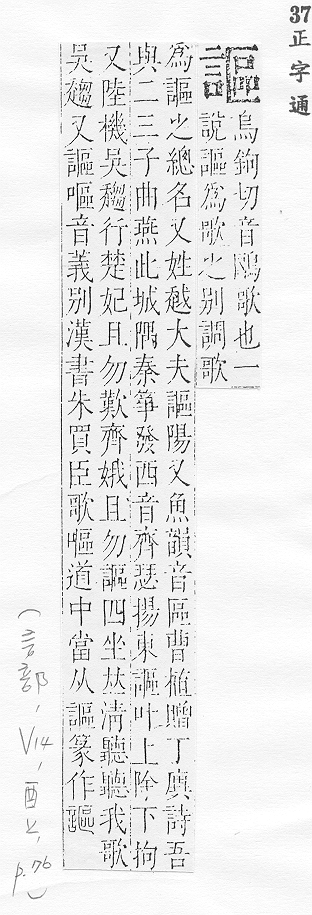 37正字通
謳
烏鉤切音鷗歌也一
說謳爲歌之別調歌
爲謳之總名又姓越大夫謳陽又魚韻音區曹植贈丁廙詩吾
與二三子曲燕此城隅秦箏發西音齊瑟揚東謳叶上除下拘
又陸機吳趨行楚妃且勿歎齊娥且勿謳四坐𠀤清聽聽我歌
吳趨又謳嘔音義別漢書朱買臣歌嘔道中當从謳篆作
(言部, V14, 酉上, p.76)